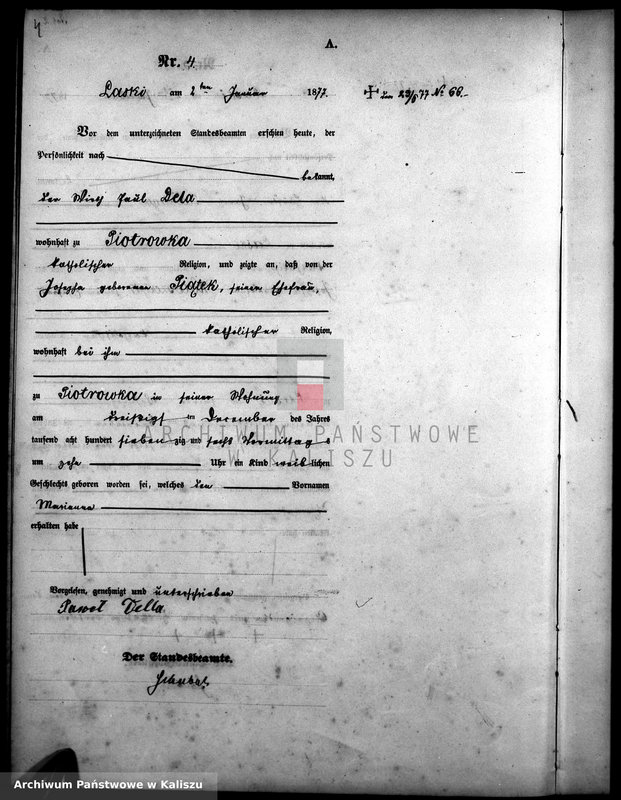 4
A.
Nr. 4
Laski am 2ten Januar 1877.
Vor dem unterzeichneten Standesbeamten erschien heute, der
Persönlichkeit nach
bekannt,
der Wirth Paul Dela
wohnhaft zu Piotrowka
katholischer Religion, und zeigte an, daß von der
Josepha geborenen Piątek, seiner Ehefrau,
katholischer Religion,
wohnhaft bei ihm
zu Piotrowka in seiner Wohnung
am dreißigsten December des Jahres
tausend acht hundert siebenzig und sechs Vormittags
um zehn Uhr ein Kind weiblichen
Geschlechts geboren worden sei, welches den Vornamen
Marianna
erhalten habe
Vorgelesen, genehmigt und unterschrieben
Paweł Della
Der Standesbeamte.
77 No 66.
ARCHIWUM PAŃSTWOWE
W KALISZU
Archiwum Państwowe w Kaliszu